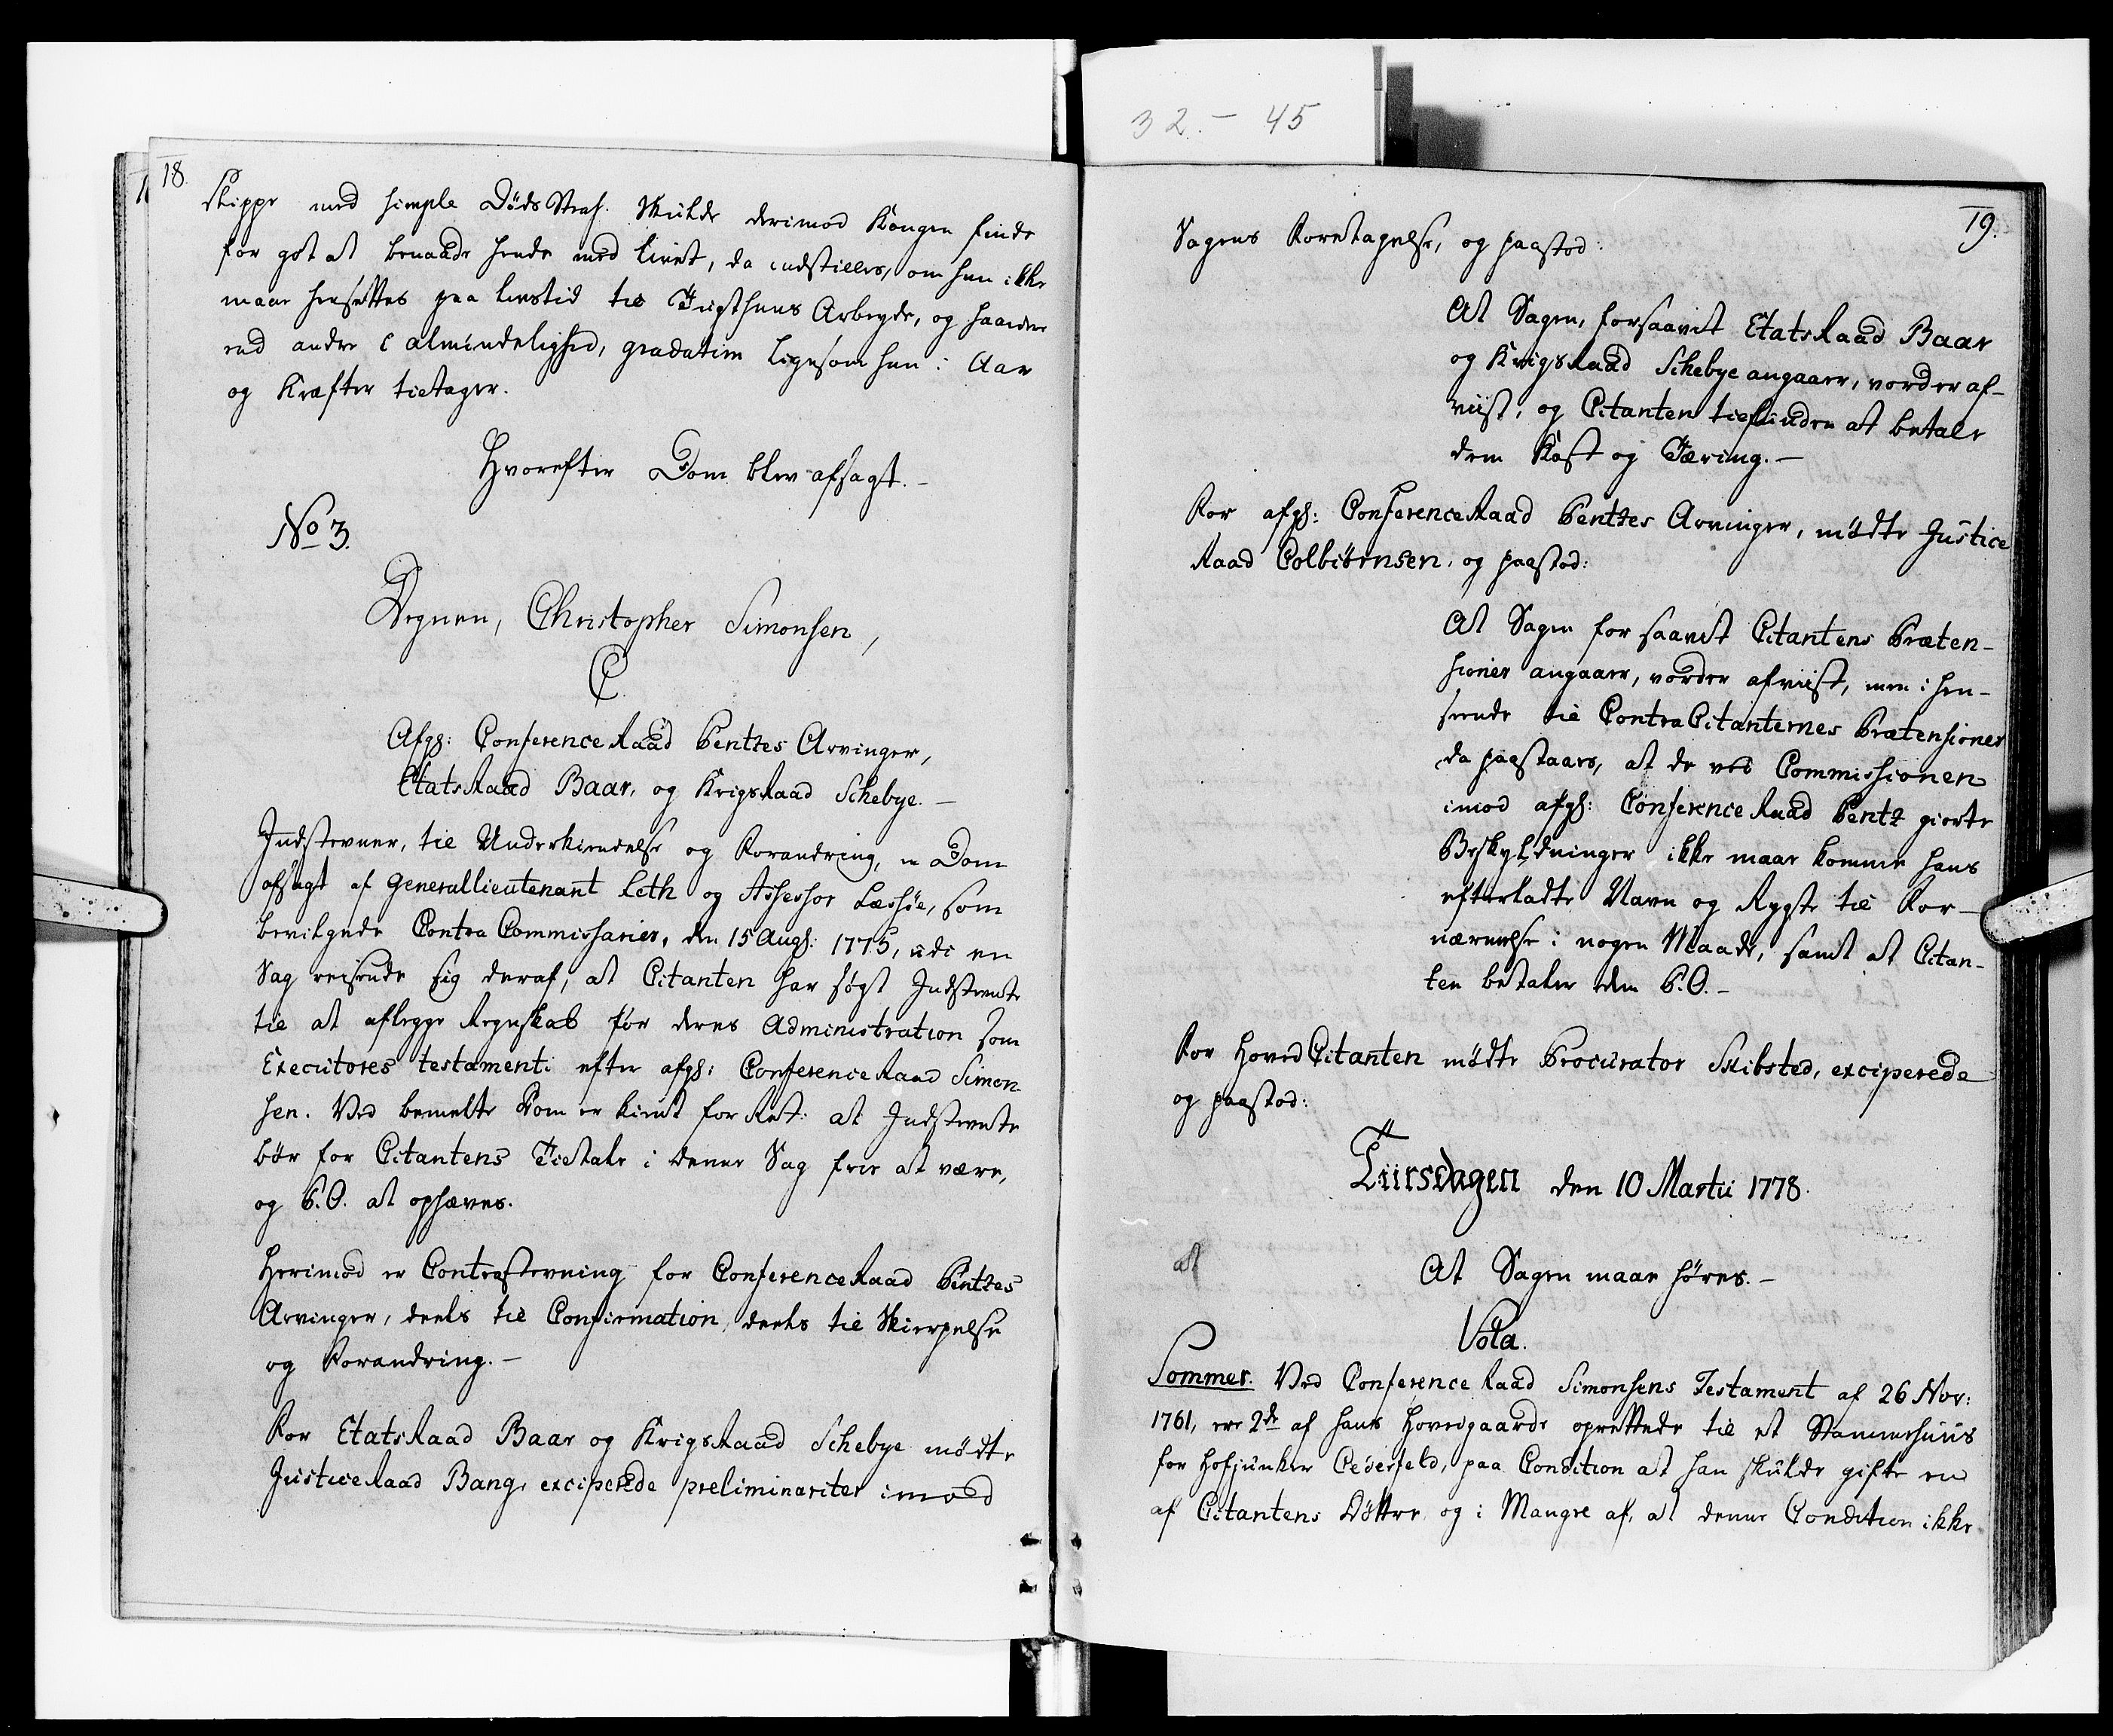 32.- 45
18.
slippe med simple Døds Straf. Skulde derimod Kongen finde
for got at benaade hende med Livet, da indstilles, om hun ikke
maae hensettes paa Livstid til Tugthuus Arbeyde, og haardere
end andre i Almindelighed, gradatim ligesom hun i Aar
og Kræfter tiltager.
Hvorefter Dom blev afsagt.-
No 3.
Degnen, Christopher Simonsen,
C
Afg: Conference Raad Pentzes Arvinger,
Etats Raad Baar, og Krigs Raad Schebye.-
Indstevner, til Underkiendelse og Forandring, en Dom
afsagt af Generallieutenant Leth og Assessor Læssøe, som
bevilgede Contra Commissarier, den 15 Augs: 1775, udi en
Sag reisende sig deraf, at Citanten har søgt Indstevnte
til at aflegge Regnskab for deres Administration som
Executores testamenti efter afg: Conference Raad Simon-
sen. Ved bemelte Dom er kiendt for Ret: at Indstevnte
bør for Citantens Tiltale i denne Sag frie at være,
og P.O. at ophæves.
Herimod er Contrastevning for Conference Raad Pentzes
Arvinger, deels til Confirmation, deels til Skierpelse
og Forandring.-
For Etats Raad Baar og Krigs Raad Schebye mødte
Justice Raad Bang, exciperede preliminariter imod
19.
Sagens Foretagelse, og paastod:
At Sagen, forsaavit Etats Raad Baar
og Krigs Raad Schebye angaaer, vorder af-
viist, og Citanten tilfunden at betale
dem Kost og Tæring.-
For afg: Conference Raad Pentzes Arvinger, mødte Justice
Raad Colbiørnsen, og paastod:
At Sagen for saavit Citantens Præten-
sioner angaaer, vorder afviist, men i hen-
seende til Contra Citanternes Prætensioner
da paastaaes, at de ved Commissionen
imod afg: Conference Raad Pentz giorte
Beskyldninger ikke maae komme hans
efterladte Navn og Rygte til For-
nærmelse i nogen Maade, samt at Citan-
ten betaler dem P.O.-
For Hoved Citanten mødte Procurator Skibsted, exciperede
og paastod:
Tiirsdagen den 10 Martii 1778.
at
At Sagen maae høres.-
Vota.
Sommer. Ved Conference Raad Simonsens Testament af 26 Nov:
1761, ere 2de af hans Hovedgaarde oprettede til et Stammehuus
for Hofjunker Cederfeld, paa Condition at han skulde gifte en
af Citantens Døttre, og i Mangel af, at denne Condition ikke